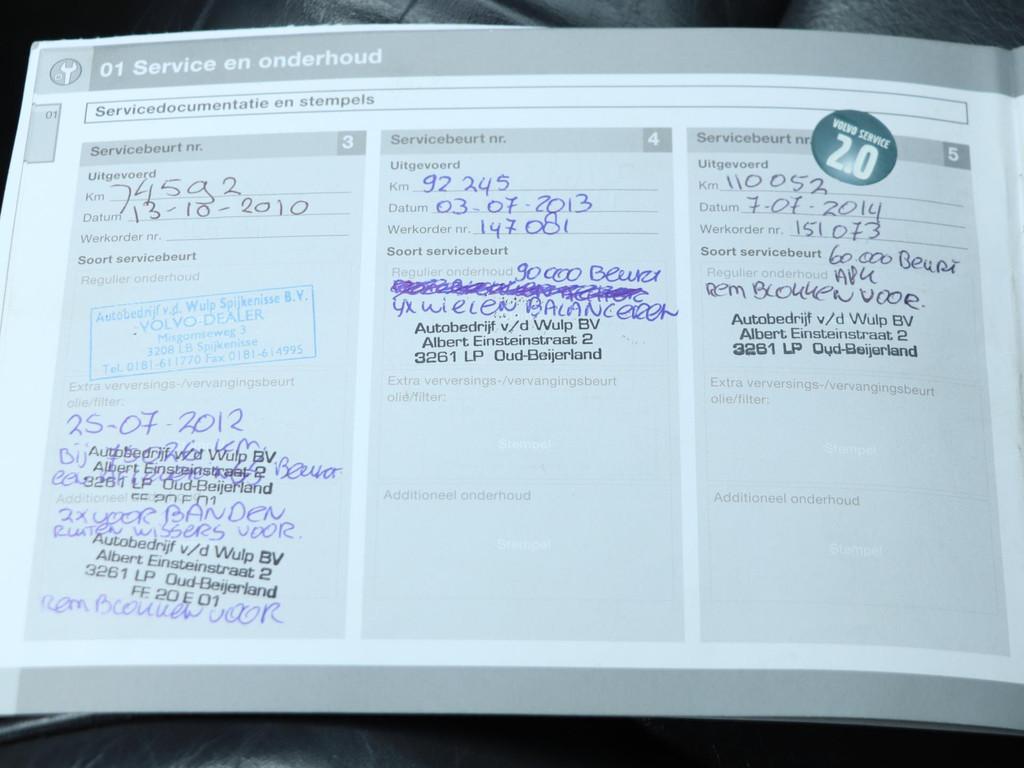 01 Service en onderhoud
01
Servicedocumentatie en stempels
Servicebeurt nr. 3
Uitgevoerd
Km 74592
Datum 13-10-2010
Werkorder nr.
Soort servicebeurt
Regulier onderhoud
Autobedrijf v.d. Wulp Spijkenisse B.V.
VOLVO-DEALER
Misgomseweg 3
3208 LB Spijkenisse
Tel. 0181-611770 Fax 0181-614995
Extra verversings-/vervangingsbeurt
olie/filter:
25-07-2012
Bij KM
Autobedrijf v/d Wulp BV
Albert Einsteinstraat 2
Beurt
3261 LP Oud-Beijerland
FF 20 E 01
Additioneel onderhoud
2x VOOR BANDEN
RUITEN WISSERS VOOR.
Autobedrijf v/d Wulp BV
Albert Einsteinstraat 2
3261 LP Oud-Beijerland
FF 20 E 01
Rem BLOKKEN VOOR
Servicebeurt nr. 4
Uitgevoerd
Km 92 245
Datum 03-07-2013
Werkorder nr. 147 081
Soort servicebeurt
Regulier onderhoud 90 000 Beurt
4x WIELEN BALANCEREN
Autobedrijf v/d Wulp BV
Albert Einsteinstraat 2
3261 LP Oud-Beijerland
Extra verversings-/vervangingsbeurt
olie/filter:
Stempel
Additioneel onderhoud
Stempel
Servicebeurt nr. 5
VOLVO SERVICE
2.0
Uitgevoerd
Km 110 052
Datum 7-07-2014
Werkorder nr. 151 073
Soort servicebeurt 60 000 Beurt
Regulier onderhoud APK
Rem BLOKKEN VOOR.
Autobedrijf v/d Wulp BV
Albert Einsteinstraat 2
3261 LP Oud-Beijerland
Extra verversings-/vervangingsbeurt
olie/filter:
Stempel
Additioneel onderhoud
Stempel